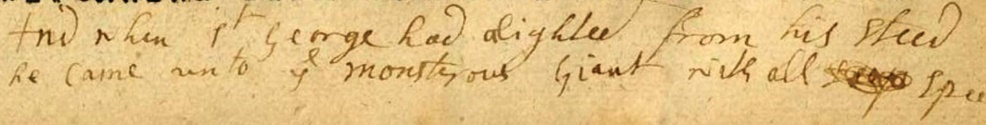 And when St George had alighted from his steed
he came unto ye monsterous Giant with all spee